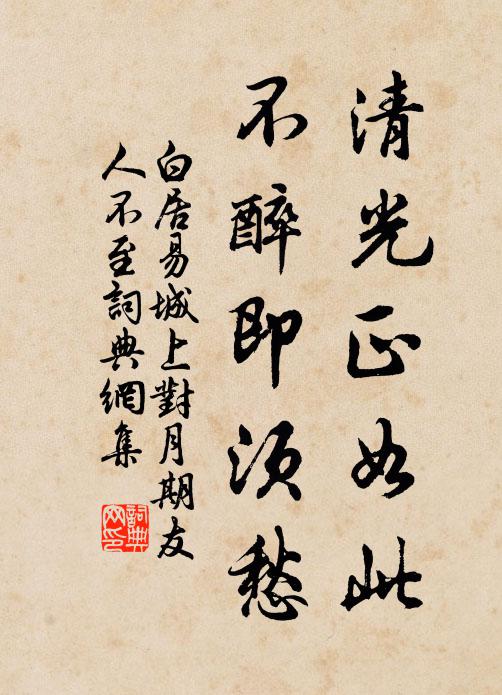 清光正如此
不醉即須愁
白居易城上對月期友
人不至詞典網集
詞典
网印